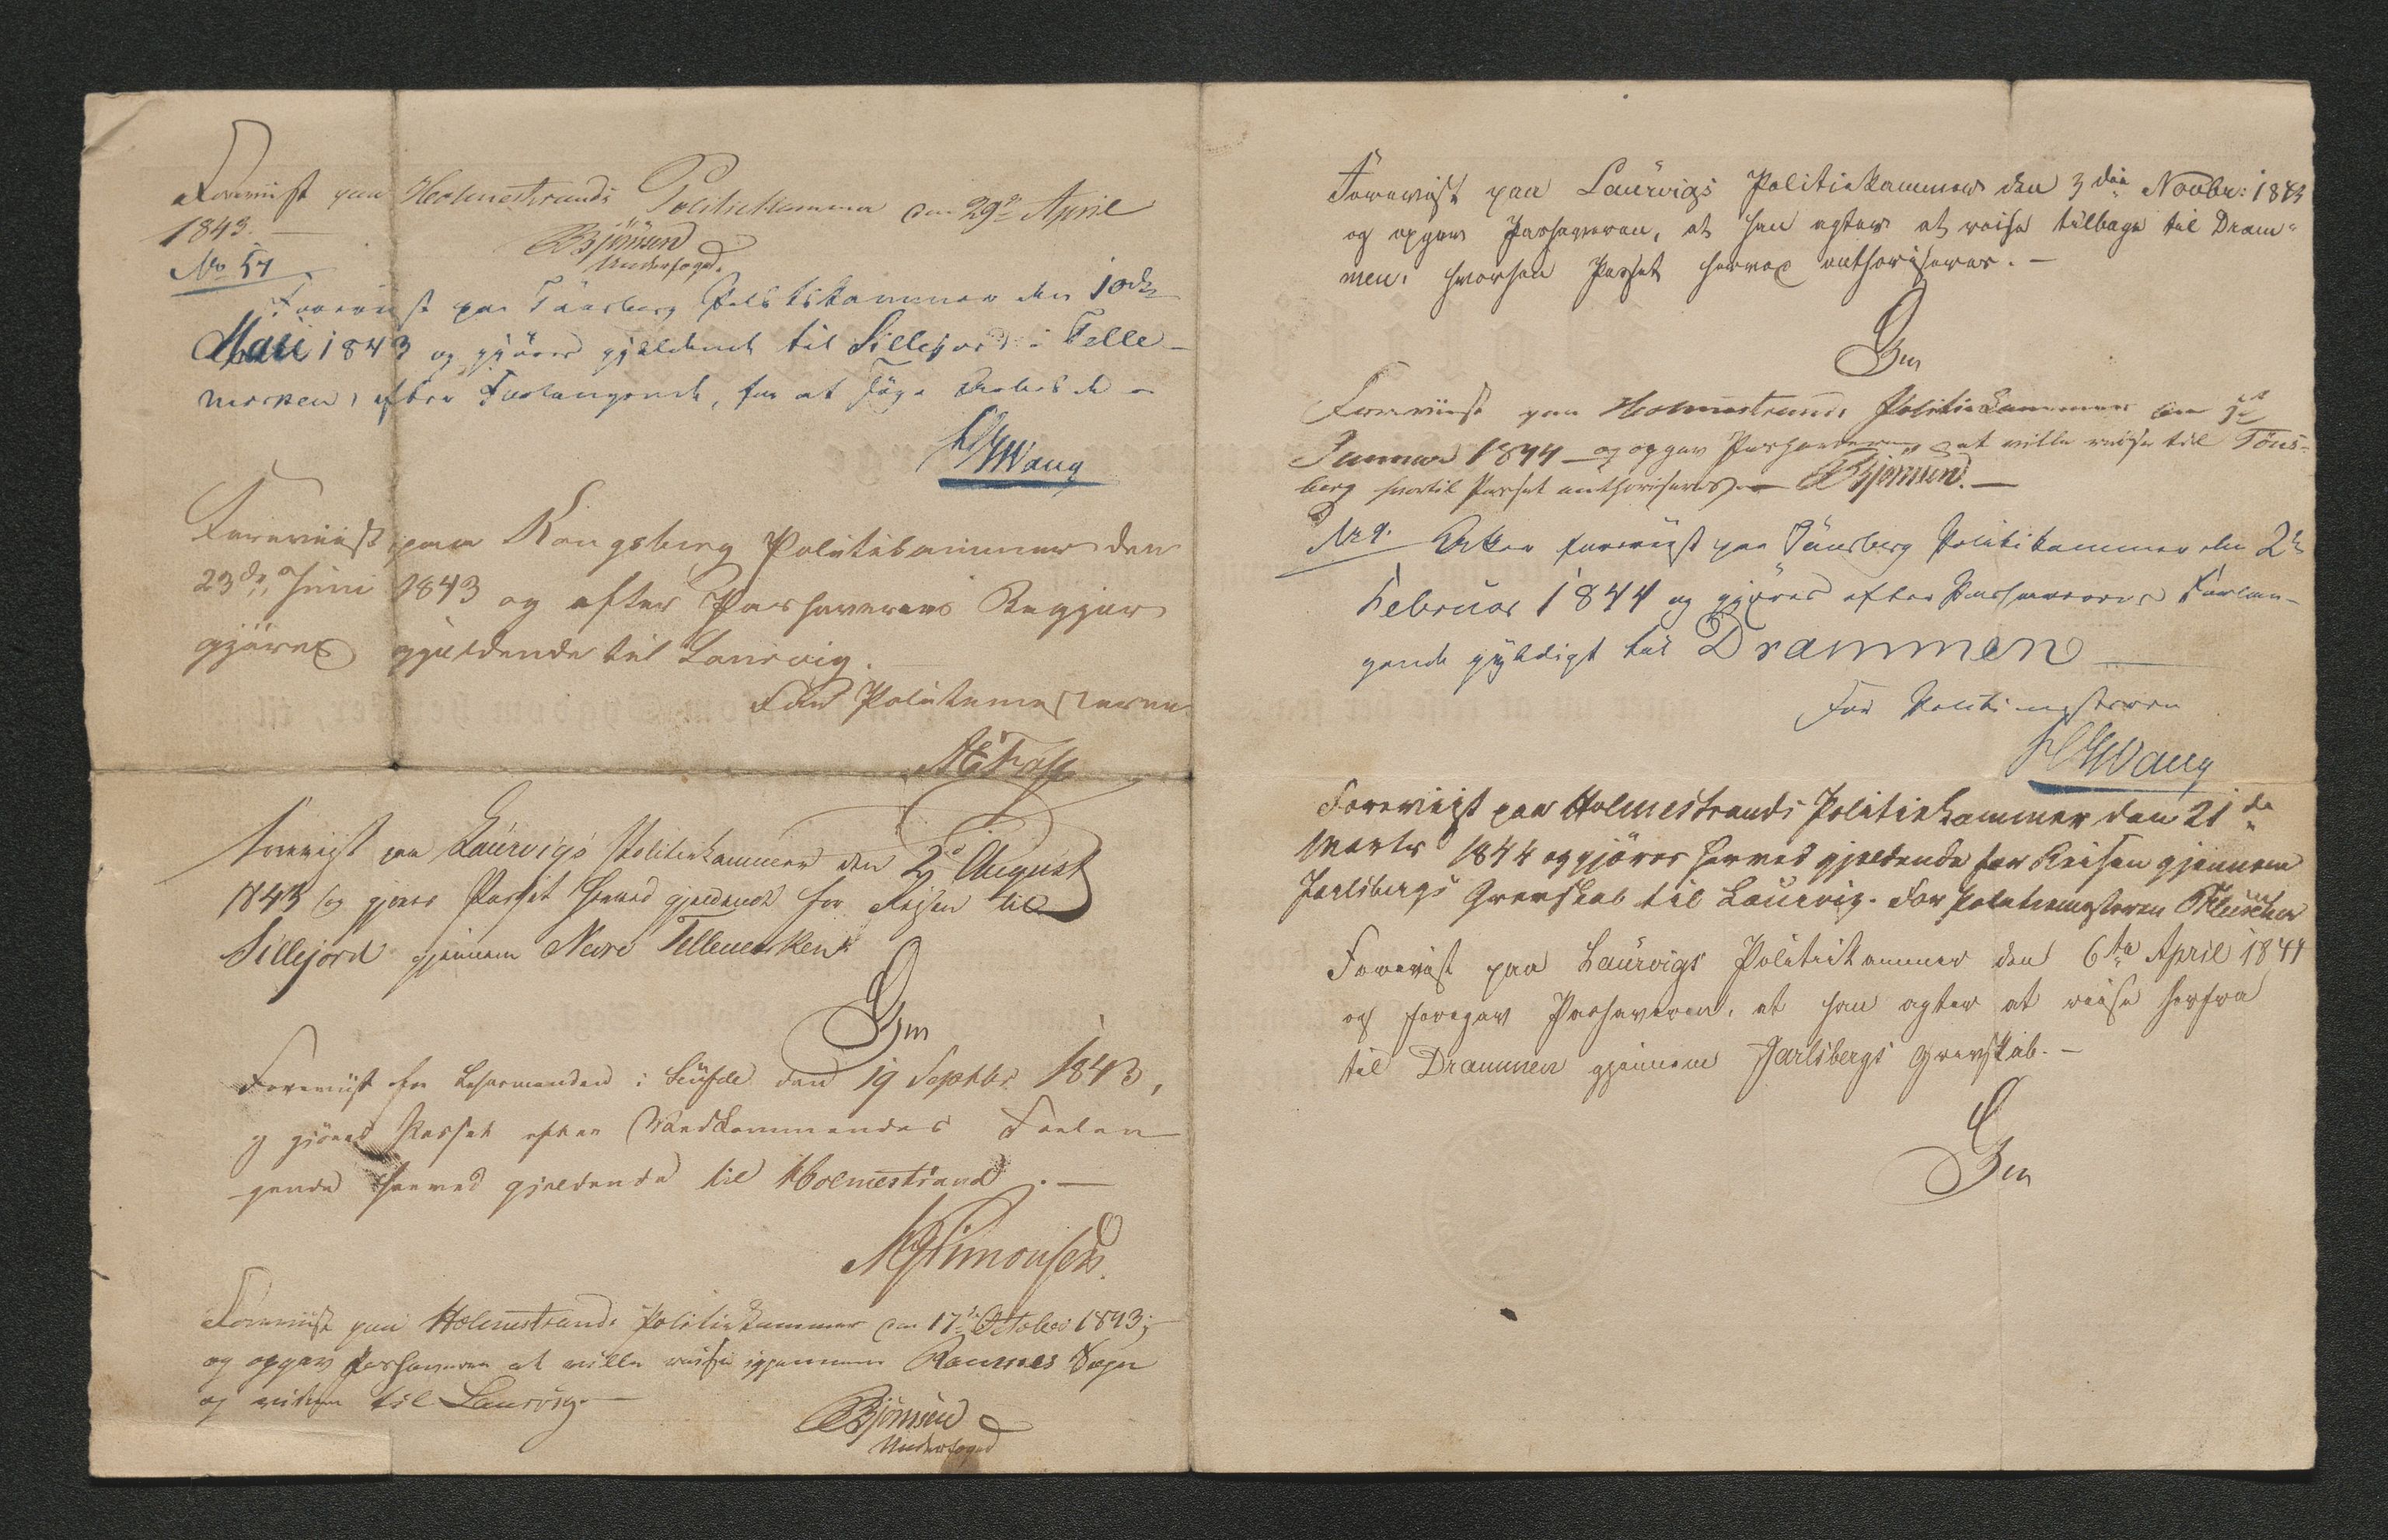 Foreviist paa Holmestrands Politiekammer den 29de April
1843. —
Bjönsen
Underfoged.
No 57
Foreviist paa Tönsberg Politikammer den 10de
Mai 1843 og gjöres gjeldende til Sillejord i Telle-
merken, efter Forlangende, for at söge Arbeide –
Waug
Foreviist paa Kongsberg Politikammer den
23de Juni 1843 og efter Pashaverens Begjær
gjöres gjældende til Laurvig.
For Politiemesteren
Foreviist paa Laurvigs Politiekammer den 2d August
1843 og gjöres Passet herved gjeldende for Reisen til
Sillejord gjennem Nedre Tellemarken.
Gm
Foreviist for Lehnsmanden i Siufde den 19 Septbr 1843,
og gjöres Passet efter Vedkommendes Forlan-
gende herved gjeldende til Holmestrand. —
Simonsen.
Foreviist paa Holmestrands Politiekammer den 17de October 1843;
og opgav Pashaveren at ville reise igjennem Ramnes Sogn
og videre til Laurvig. —
Bjönsen
Underfoged
Foreviist paa Laurvigs Politiekammer den 3die Novbr: 1843
og opgav Pashaveren, at han agter at reise tilbage til Dram-
men, hvorhen Passet herved authoriseres. —
Gm
Foreviist paa Holmestrands Politiekammer den
Januar 1844 — og opgav Pashaveren at ville reise til Töns-
berg hvortil Passet authoriseres. — Bjönsen. —
No 9. Atter foreviist paa Tönsberg Politikammer den 2de
Februar 1844 og gjöres efter Pashaverens Forlan-
gende gyldigt til Drammen —
For Politimesteren
Waug
Foreviist paa Holmestrands Politiekammer den 21de
Marts 1844 og gjöres herved gjeldende for Reisen gjennem
Jarlsbergs Grevskab til Laurvig. For Politiemesteren
Foreviist paa Laurvigs Politiekammer den 6te April 1844
og foregav Pashaveren, at han agter at reise herfra
til Drammen gjennem Jarlsbergs Grevskab. —
Gm